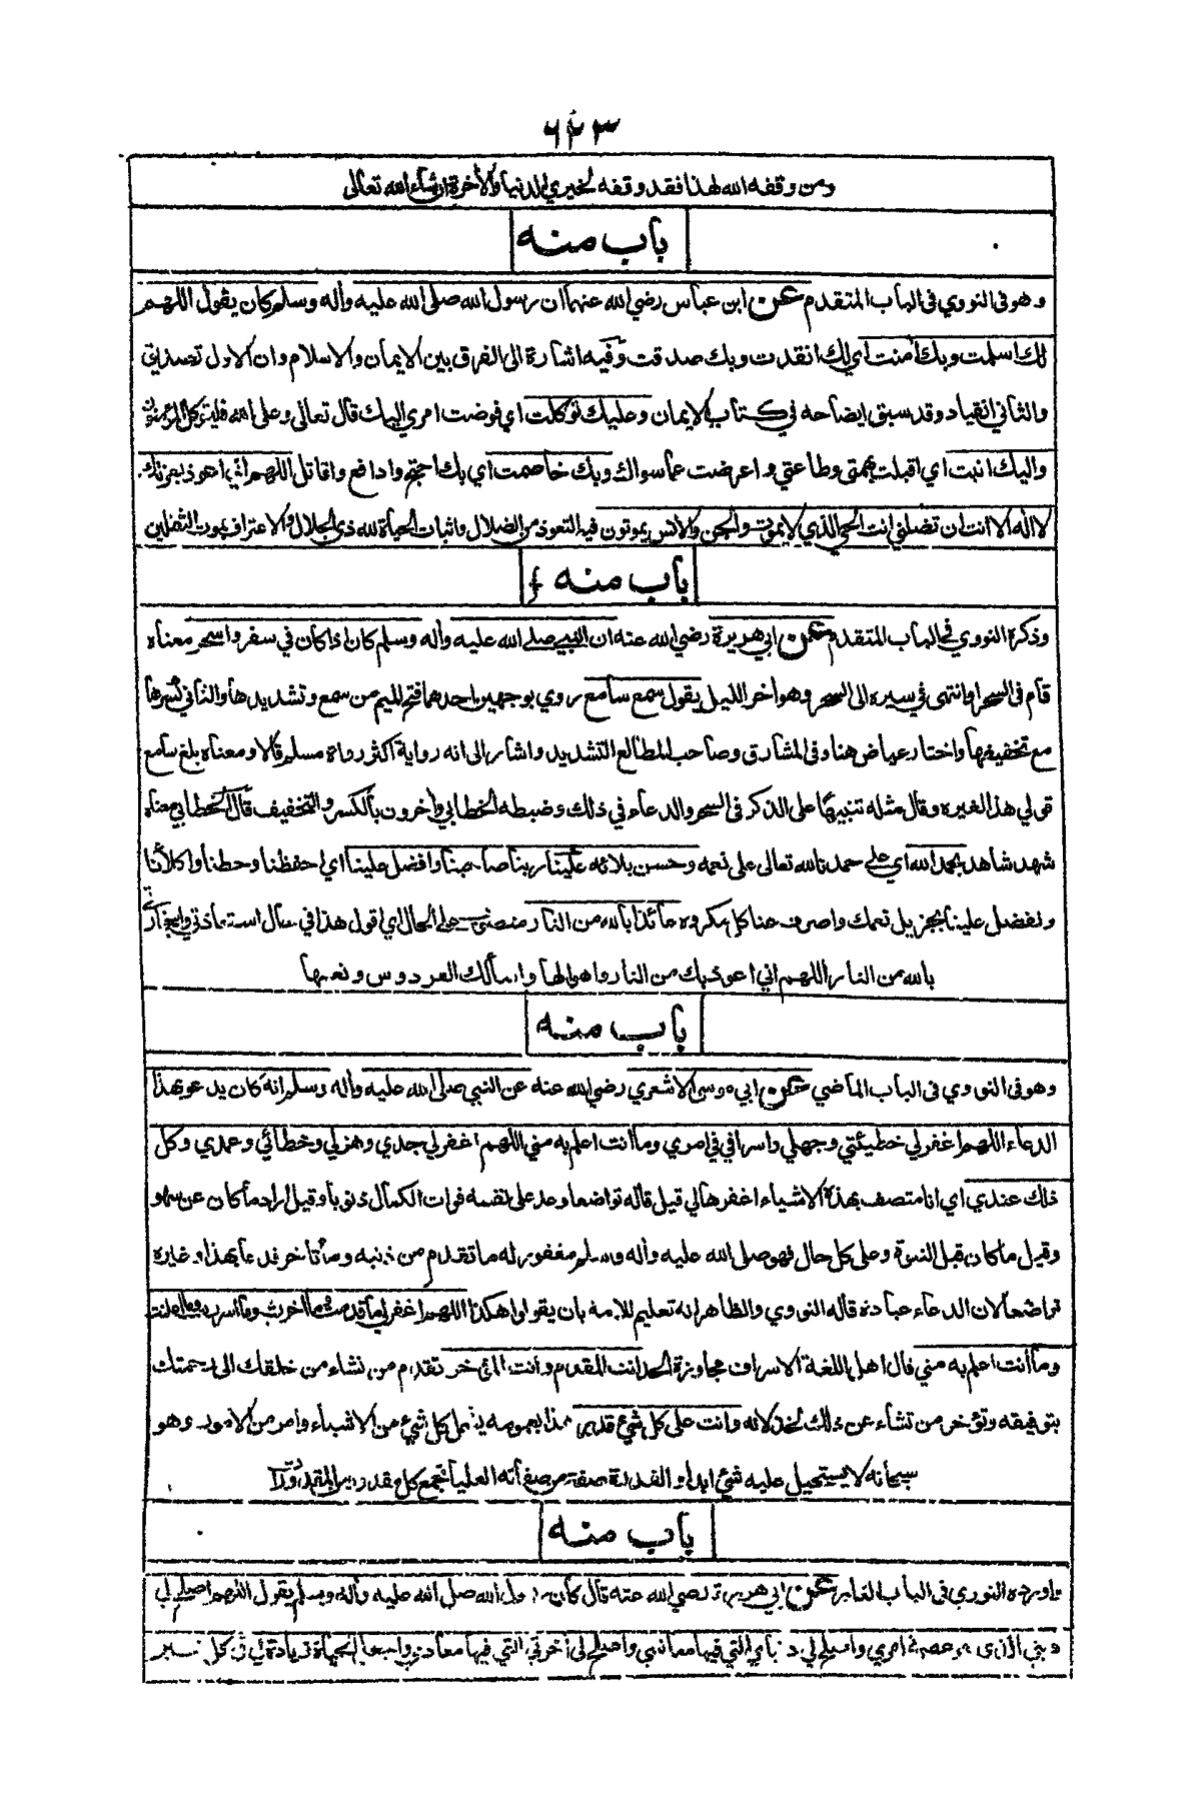 ٦٤٣
ومن وقفه الله لهذا فقد وقفه لخيري الدنيا والأخرة ان شاء الله تعالى
باب منه
وهو فى النووي فى الباب المتقدم عن ابن عباس رضي الله عنهما ان رسول الله صلى الله عليه وأله وسلم كان يقول اللهم
لك اسلمت وبك أمنت اي لك انقدت وبك صدقت وفيه اشارة الى الفرق بين الايمان والاسلام وان الاول تصديق
والثاني انقياد وقد سبق ايضاحه في كتاب الايمان وعليك توكلت اي فوضت امري اليك قال تعالى وعلى الله فليتوكل المؤمنون
واليك انبت اي اقبلت بهمتي وطاعتي واعرضت عما سواك وبك خاصمت اي بك احتج وادافع واقاتل اللهم اني اعوذ بعزتك
لا اله الا انت ان تضلني انت الحي الذي لا يموت والجن والانس يموتون فيه التعوذ من الضلال واثبات الحياة لله ذي الجلال والاعتراف بموت الثقلين
باب منه
وذكره النووي في الباب المتقدم عن ابي هريرة رضي الله عنه ان النبي صلى الله عليه وأله وسلم كان اذا كان في سفر واسحر معناه
قام فى السحر او انتهى في سيره الى السحر وهو أخر الليل يقول سمع سامع روي بوجهين احدهما فتح الميم من سمع وتشديدها والثاني كسرها
مع تخفيفها واختار عياض هنا وفى المشارق وصاحب المطالع التشديد واشار الى انه رواية اكثر رواة مسلم قالا ومعناه بلغ سامع
قولي هذا لغيره وقال مثله تنبيها على الذكر فى السحر والدعاء في ذلك وضبطه الخطابي وأخرون بالكسر والتخفيف قال الخطابي معناه
شهد شاهد بحمد الله اي على حمدنا لله تعالى على نعمه وحسن بلائه علينا ربنا صاحبنا وافضل علينا اي احفظنا وحطنا واكلأنا
وتفضل علينا بجزيل نعمك واصرف عنا كل مكروه عائذا بالله من النار منصوب على الحال اي اقول هذا في حال استعاذتي واستجارتي
بالله من النار اللهم اني اعوذ بك من النار واهوالها واسألك الفردوس ونعيمها
باب منه
وهو فى النووي فى الباب الماضي عن ابي موسى الاشعري رضي الله عنه عن النبي صلى الله عليه وأله وسلم انه كان يدعو بهذا
الدعاء اللهم اغفر لي خطيئتي وجهلي واسرافي في امري وما انت اعلم به مني اللهم اغفر لي جدي وهزلي وخطائي وعمدي وكل
ذلك عندي اي انا متصف بهذه الاشياء اغفرها لي قيل قاله تواضعا وعد على نفسه فوات الكمال ذنوبا وقيل اراد ما كان عن سهو
وقيل ما كان قبل النبوة وعلى كل حال فهو صلى الله عليه وأله وسلم مغفور له ما تقدم من ذنبه وما تأخر فدعا بهذا وغيره
تواضعا لان الدعاء عبادة قاله النووي والظاهر انه تعليم للامة بان يقولوا هكذا اللهم اغفر لي ما قدمت وما اخرت وما اسررت وما اعلنت
وما انت اعلم به مني قال اهل اللغة الاسراف مجاوزة الحد انت المقدم وانت المؤخر تقدم من تشاء من خلقك الى رحمتك
بتوفيقه وتؤخر من تشاء عن ذلك لخذلانه وانت على كل شيء قدير هذا بعمومه يشمل كل شيء من الاشياء وامر من الامور وهو
سبحانه لا يستحيل عليه شئ ابدا والقدرة صفة من صفاته العليا تجمع كل مقدور من المقدورات
باب منه
واورده النووي فى الباب الغابر عن ابي هريرة رضي الله عنه قال كان رسول الله صلى الله عليه وأله وسلم يقول اللهم اصلح لي
ديني الذي هو عصمة امري واصلح لي دنياي التي فيها معاشي واصلح لي أخرتي التي فيها معادي واجعل الحياة زيادة لي في كل خير